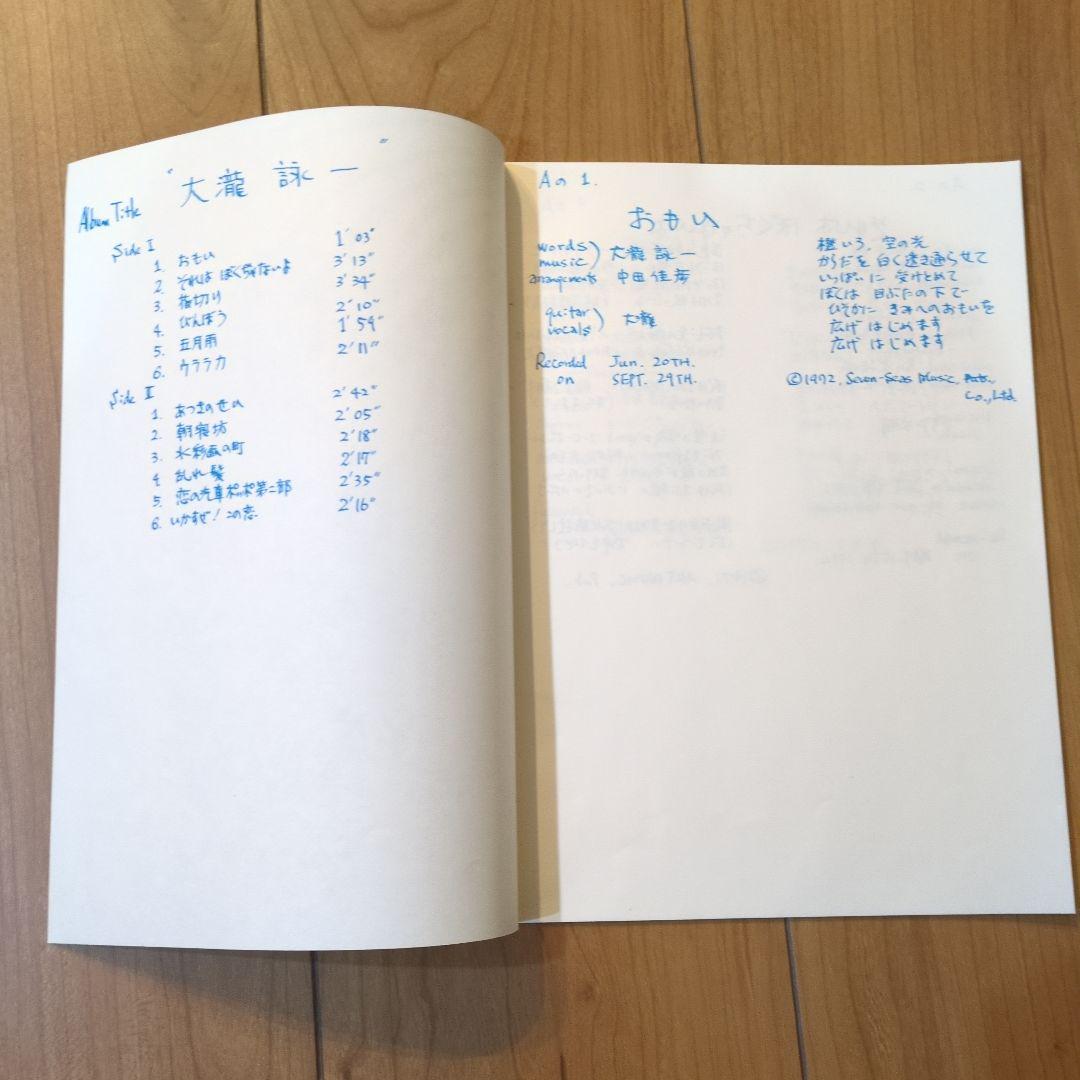 "大瀧 詠一"
Album Title
Side I
1. おもい 1'03"
2. それは ぼくぢゃないよ 3'13"
3. 指切り 3'34"
4. びんぼう 2'10"
5. 五月雨 1'59"
6. ウララカ 2'11"
Side II
1. あつさのせい 2'42"
2. 朝寝坊 2'05"
3. 水彩画の町 2'18"
4. 乱れ髪 2'17"
5. 恋の汽車ポッポ第二部 2'35"
6. いかすぜ!この恋 2'16"
Aの1.
おもい
words
music) 大瀧 詠一
arrangements 中田 佳彦
guitar
vocals) 大瀧
Recorded Jun. 20TH.
on SEPT. 29TH.
橙いろ、空の光
からだを 白く透き通らせて
いっぱいに 受けとめて
ぼくは 目ぶたの下で
ひそかに きみへのおもいを
広げ はじめます
広げ はじめます
©1972, Seven-Seas Music,
Co., Ltd.